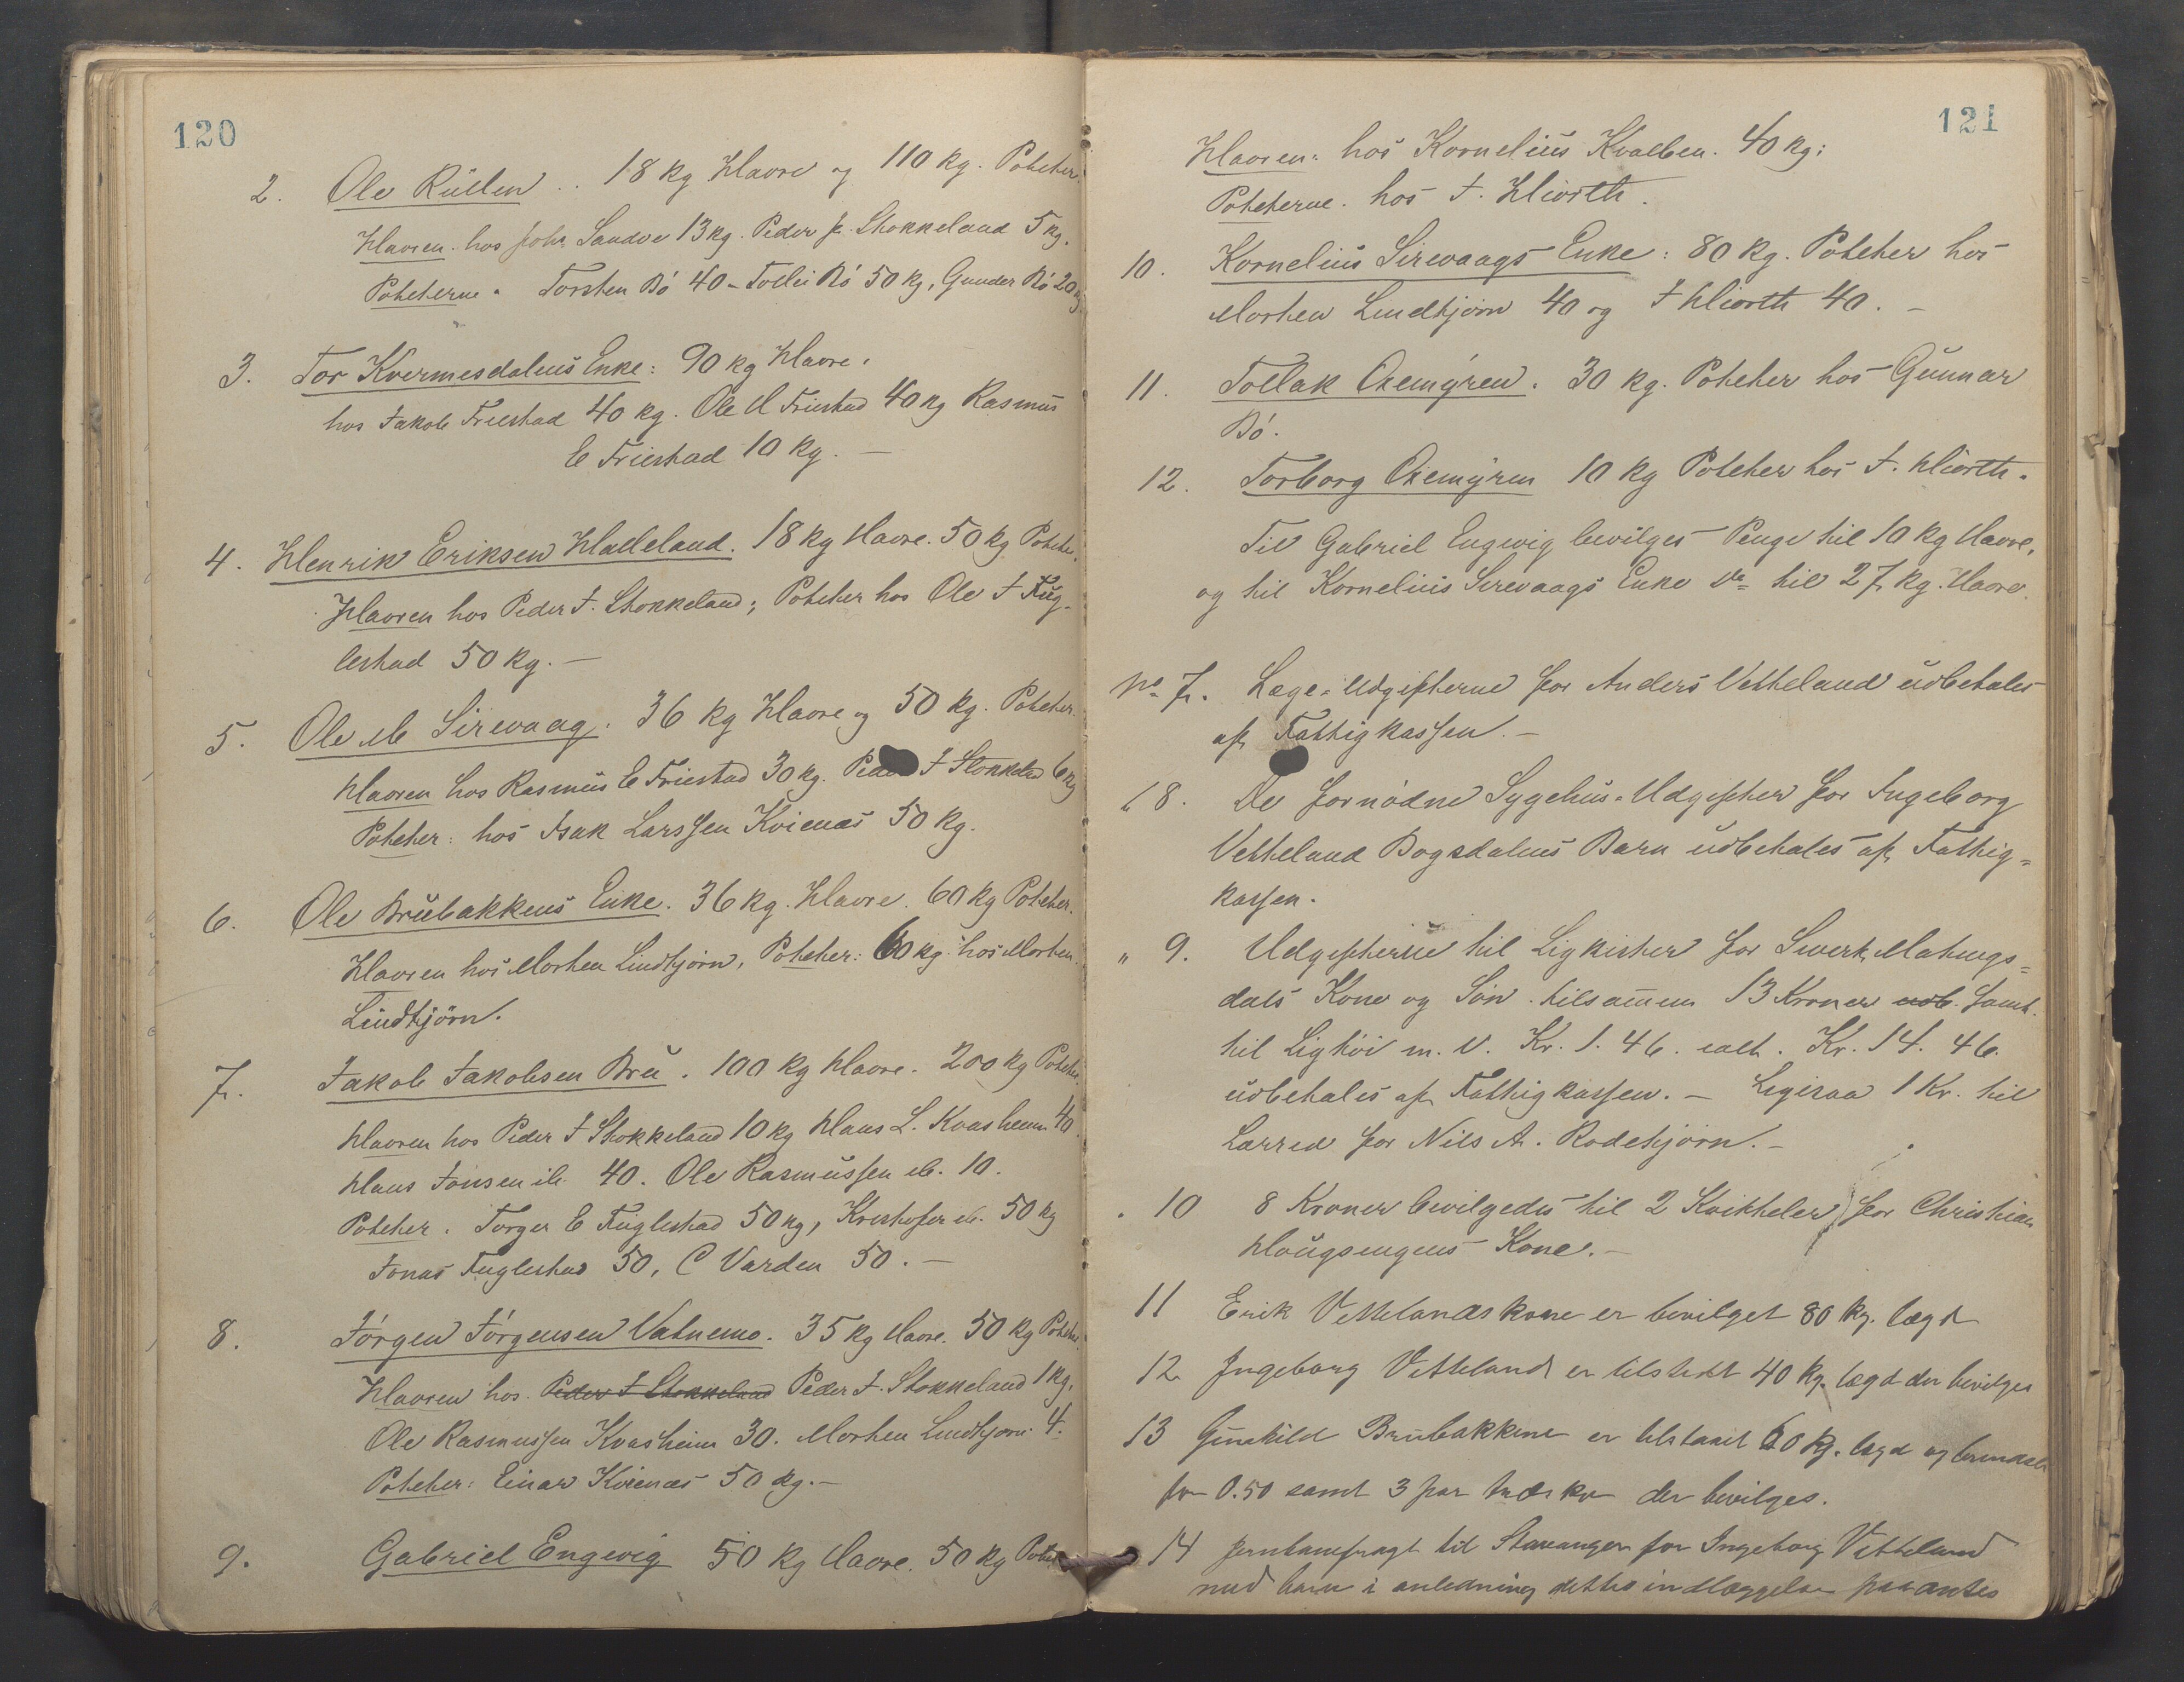 120
2. Ole Rüllen .. 18 kg Havre og 110 kg. Poteter.
Havren. hos John Sandve 13 kg. Peder J. Stokkeland 5 kg.
Poteterne. Torsten Bö 40 - Tollei Bö 50 kg, Gunder Bö 20 kg
3. Tor Kvermesdalens Enke: 90 kg Havre.
hos Jakob Friestad 40 kg. Ole M Friestad 40 kg Rasmus
E Friestad 10 kg. —
4. Henrik Eriksen Hadeland. 18 kg Havre. 50 kg Poteter.
Havren hos Peder J. Stokkeland; Poteter hos Ole J Fug-
lestad 50 kg. —
5. Ole M Sirevaag. 36 kg Havre og 50 kg. Poteter.
Havren hos Rasmus E Friestad 30 kg. Peder J Stokkeland 6 kg
Poteter: hos Isak Larssen Kvienæs 50 kg.
6. Ole Brübakkens Enke. 36 kg. Havre. 60 kg Poteter.
Havren hos Morten Lindtjörn, Poteter: 60 kg. hos Morten
Lindtjörn.
7. Jakob Jakobsen Brü. 100 kg Havre. 200 kg Poteter.
Havren hos Peder J Stokkeland 10 kg Hans L. Kvasheim 40
Hans Jonsen ib. 40. Ole Rasmussen ib. 10.
Poteter. Torger E Fuglestad 50 kg, Kristofer ib. 50 kg
Jonas Fuglestad 50, C Varden 50. —
8. Jörgen Jörgensen Vatnemo. 35 kg Havre. 50 kg Poteter.
Havren hos. Peder J Stokkeland Peder J. Stokkeland 1 kg.
Ole Rasmussen Kvasheim 30. Morten Lindtjörn 4.
Poteter: Einar Kvienæs 50 kg. —
9. Gabriel Engevig 50 kg Havre. 50 kg Poteter
121
Havren: hos Kornelius Kvalben. 40 kg:
Poteterne. hos J. Hiorth.
10. Kornelius Sirevaags Enke: 80 kg. Poteter hos
Morten Lindtjörn 40 og J Hiorth 40. —
11. Tollak Oxemyren. 30 kg. Poteter hos Gunnar
Bö.
12. Torborg Oxemyren 10 kg Poteter hos J. Hiorth.
Til Gabriel Engevig bevilges Penge til 10 kg Havre,
og til Kornelius Sirevaags Enke do til 27 kg. Havre.
No 7. Læge-Udgifterne for Anders Vetteland udbetales
af Fattigkassen. —
" 8. De fornødne Sygehus-Udgifter for Ingeborg
Vetteland Bogsdalens Barn udbetales af Fattig-
kassen.
" 9. Udgifterne til Ligkister for Sverk Matings-
dals Kone og Sön tilsammen 13 Kroner udb. samt.
til Lighöi m. v. Kr. 1. 46. ialt. Kr. 14. 46.
udbetales af Fattigkassen. — Ligesaa 1 Kr. til
Lærred for Nils A. Rodetjörn. —
" 10 8 Kroner bevilgedes til 2 Kviltteler for Christian
Haugsengens Kone. —
11 Erik Vettelands kone er bevilget 80 kg. lægd
12 Ingeborg Vetteland er tilstedt 40 kg. lægd der bevilges
13 Gunhild Brubakkene er tilstaait 60 kg. lægd og brændsel
for 0.50 samt 3 par træsko der bevilges.
14 Jernbanefragt til Stavanger for Ingeborg Vetteland
med barn i anledning dettes indlæggelse paa